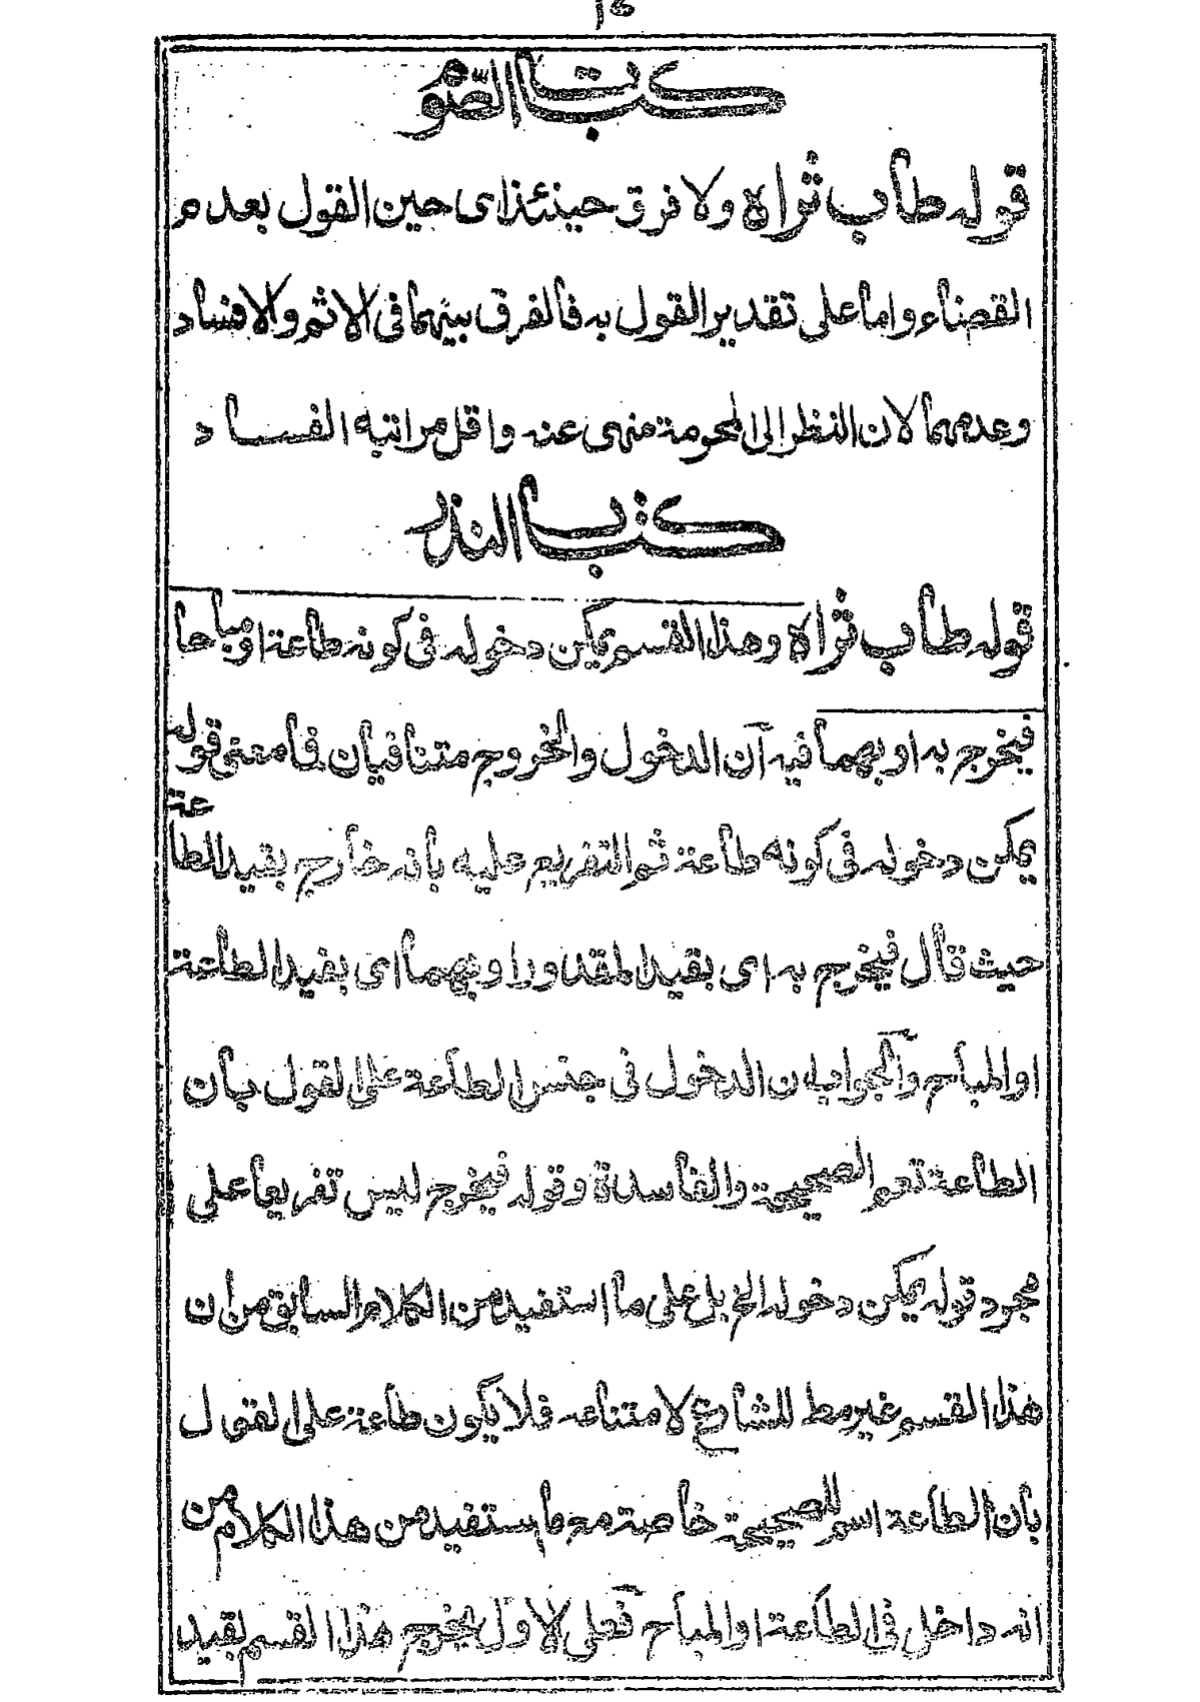 ١٤
كتاب الصوم
قوله طاب ثراه ولا فرق حينئذ اى حين القول بعدم
القضاء واما على تقدير القول به فالفرق بينهما فى الاثم والافساد
وعدمهما لان النظر الى المحرمة منهى عنه واقل مراتبه الفساد
كتاب النذر
قوله طاب ثراه وهذا القسم يمكن دخوله فى كونه طاعة او مباحا
فيخرج به او بهما فيه آن الدخول والخروج متنافيان فما معنى قوله
يمكن دخوله فى كونه طاعة ثم التفريع عليه بانه خارج بقيد الطاعة
حيث قال فيخرج به اى بقيد المقدور او بهما اى بقيد الطاعة
او المباح والجواب ان الدخول فى جنس الطاعة على القول بان
الطاعة تعم الصحيحة والفاسدة وقوله فيخرج ليس تفريعا على
مجرد قوله يمكن دخوله الخ بل على ما استفيد من الكلام السابق من ان
هذا القسم غير مط للشارع لامتناعه فلا يكون طاعة على القول
بان الطاعة اسم للصحيحة خاصة مع ما استفيد من هذا الكلام من
انه داخل فى الطاعة او المباح فعلى الاول يخرج هذا القسم بقيد